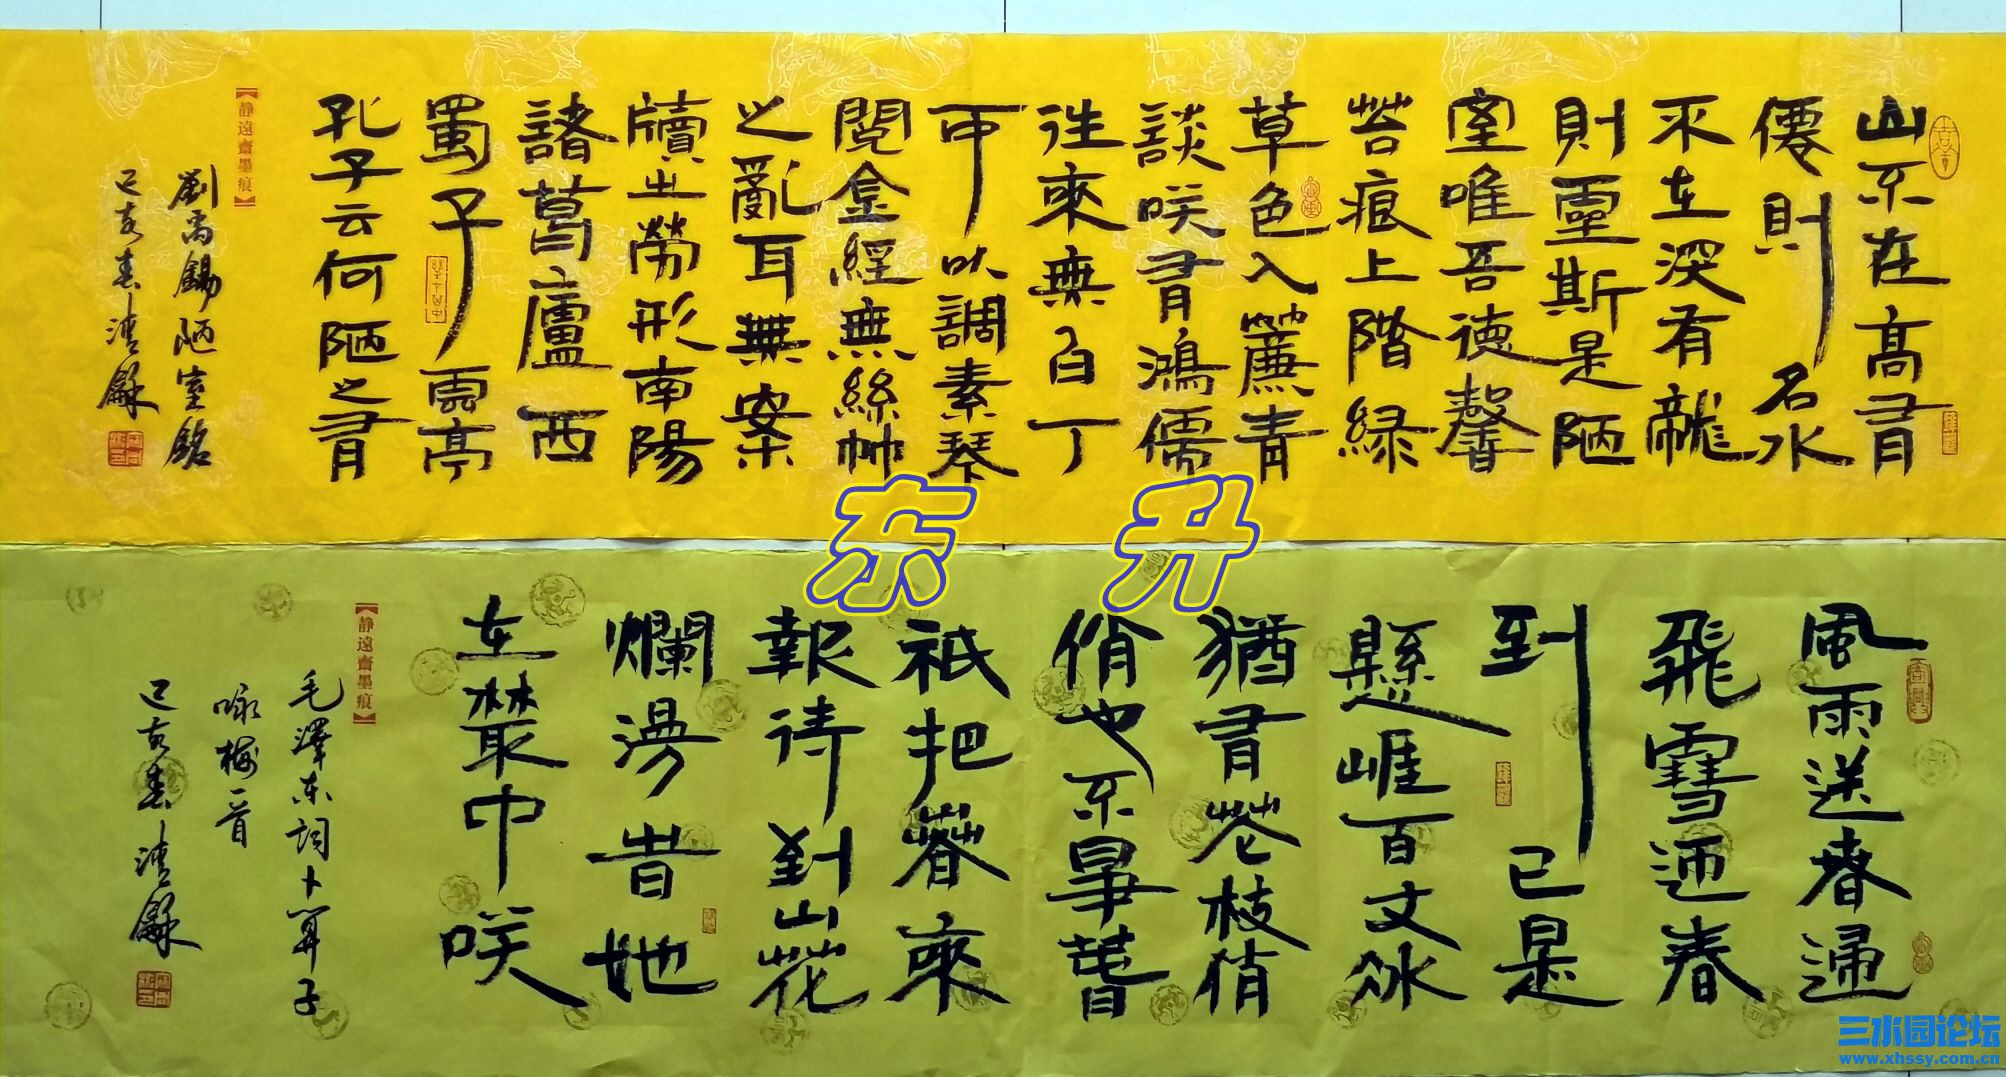 山不在高有
僊則名水
不在深有龍
則靈斯是陋
室唯吾德馨
苔痕上階緑
草色入簾青
談咲有鴻儒
往來無白丁
可以調素琴
閲金經無絲竹
之亂耳無案
牘之勞形南陽
諸葛廬西
蜀子雲亭
孔子云何陋之有
【静遠齋墨痕】
劉禹錫陋室銘
己亥春
东升
風雨送春歸
飛雪迎春
到已是
懸崖百丈冰
猶有花枝俏
俏也不爭春
祇把春來
報待到山花
爛漫時她
在叢中咲
【静遠齋墨痕】
毛澤東詞卜算子
咏梅一首
己亥春
三水园论坛
www.xhssy.com.cn